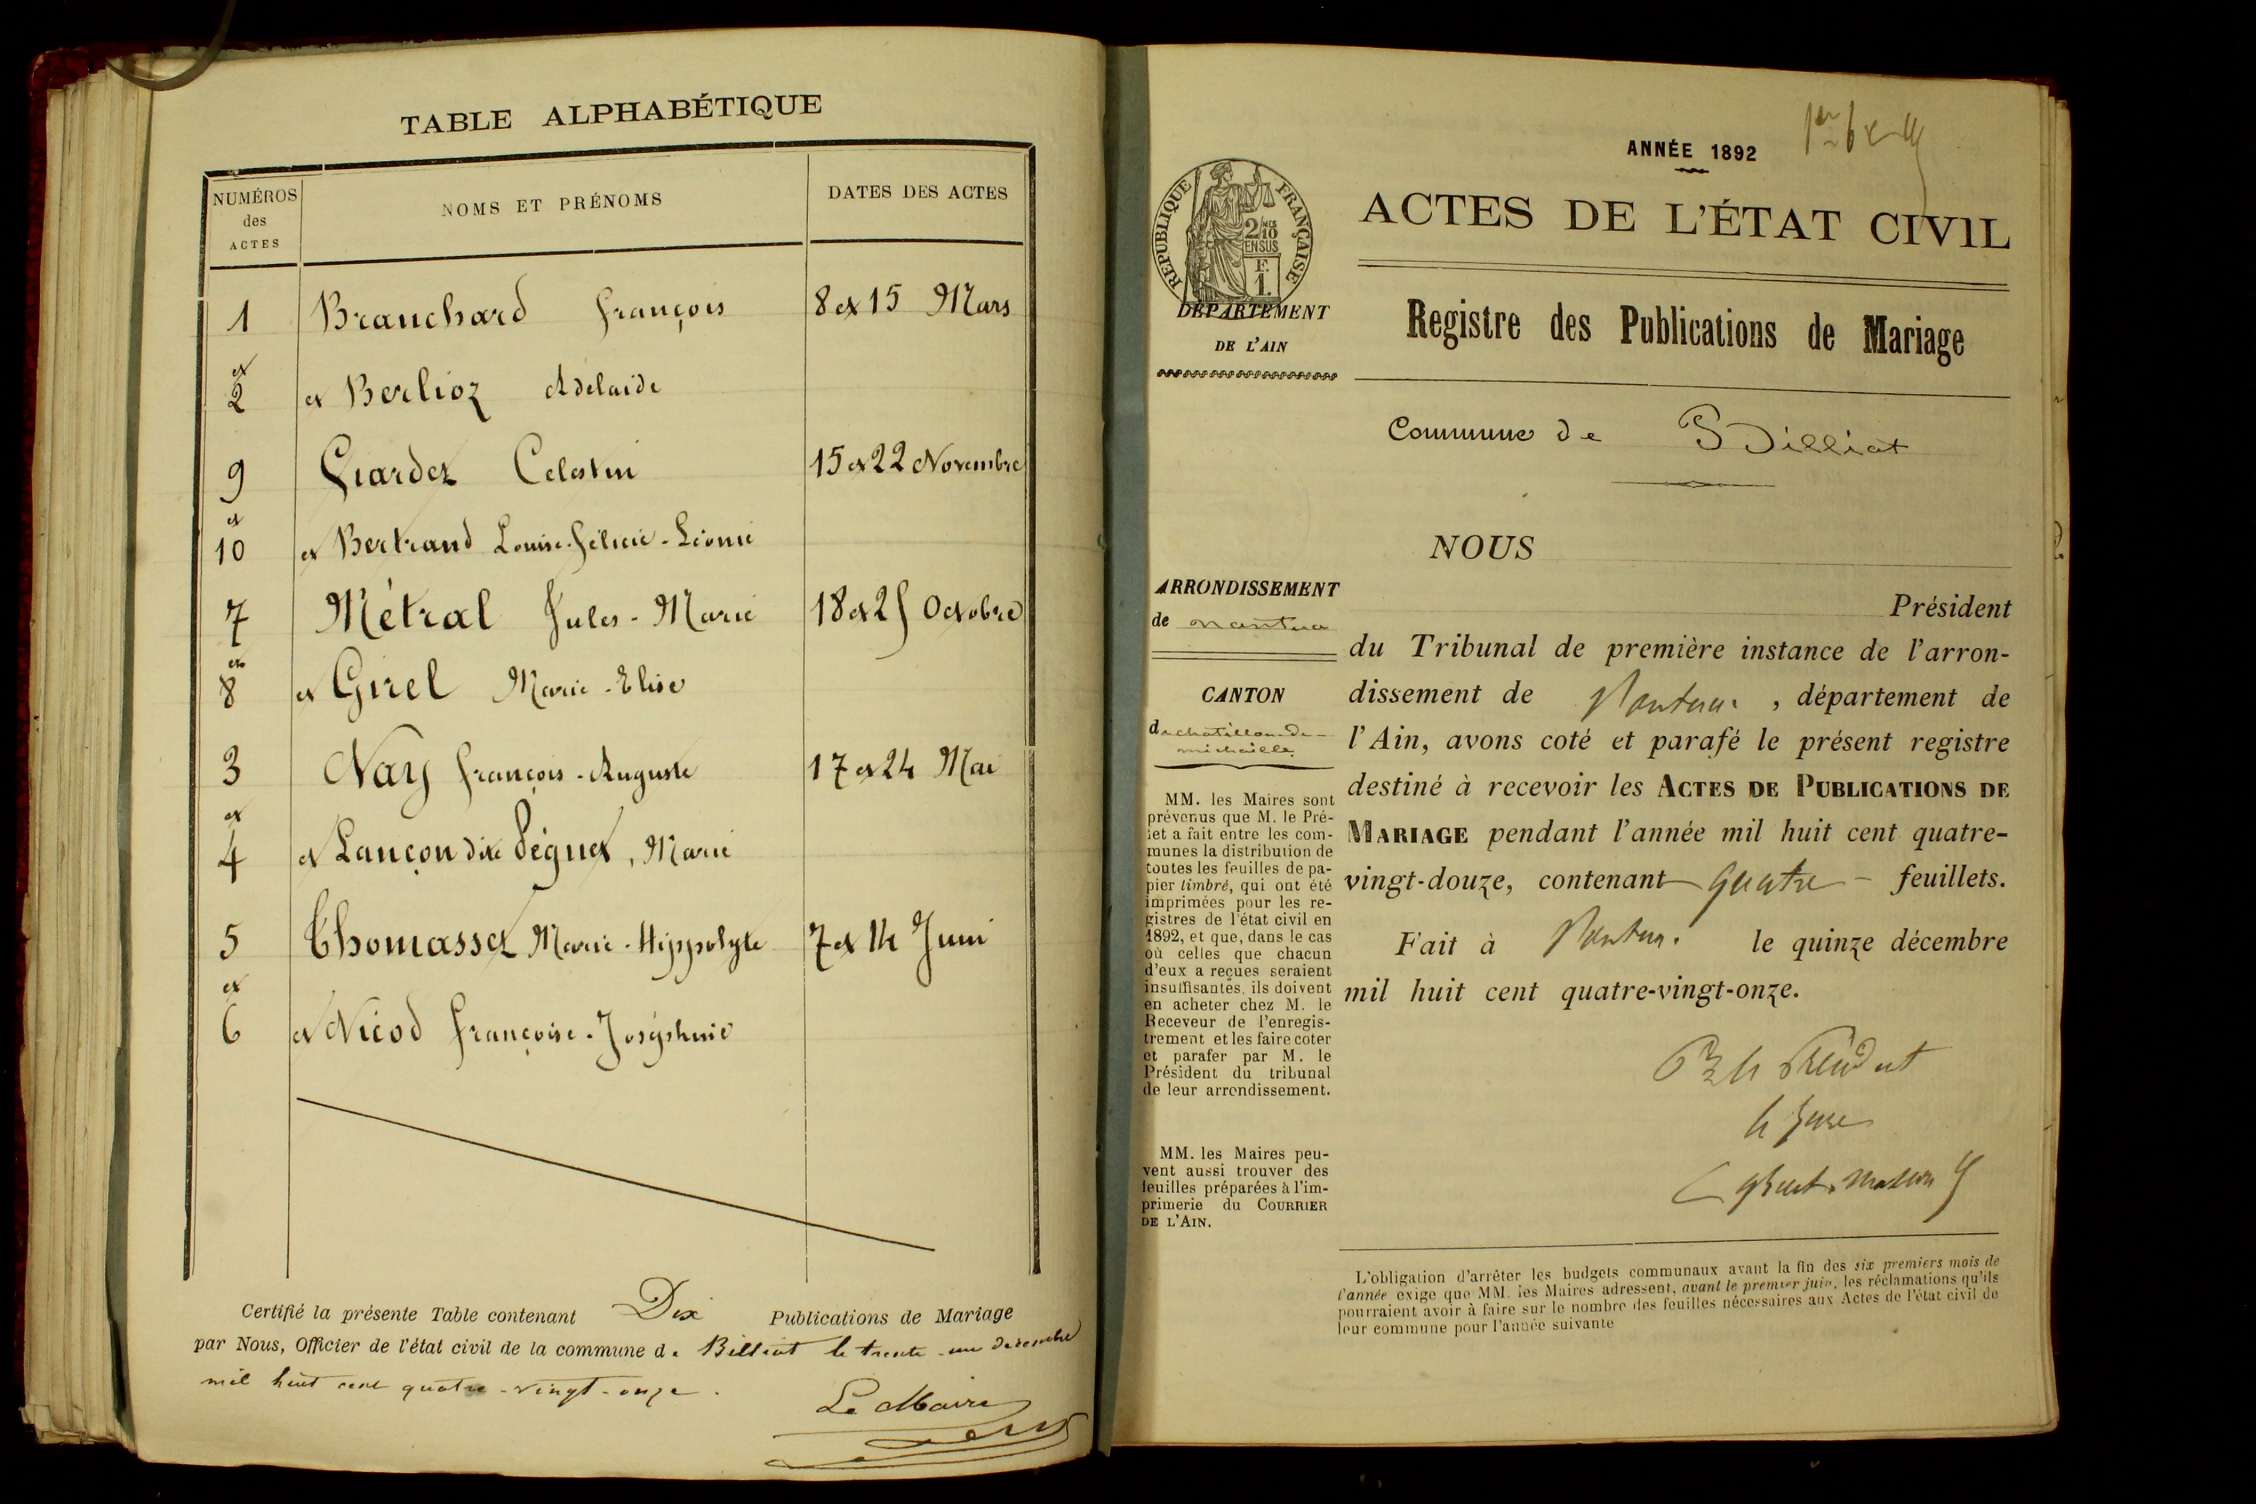 TABLE ALPHABÉTIQUE
NUMÉROS
des
ACTES
NOMS ET PRÉNOMS
DATES DES ACTES
1 Branchard François 8 et 15 Mars
et
2 et Berlioz Adelaïde
9 Gardez Celestin 15 et 22 Novembre
et
10 et Bertrand Louise-Félicie-Léonie
7 Métral Jules-Marie 18 et 25 Octobre
et
8 et Girel Marie-Elise
3 Nay François-Auguste 17 et 24 Mai
et
4 et Lançon dite Péguet, Marie
5 Thomasset Marie-Hippolyte 7 et 14 Juin
et
6 et Nicod Françoise-Joséphine
Certifié la présente Table contenant Dix Publications de Mariage
par Nous, Officier de l'état civil de la commune de Billiat le trente-un décembre
mil huit cent quatre-vingt-onze.
Le Maire
ANNÉE 1892
ACTES DE L'ÉTAT CIVIL
RÉPUBLIQUE FRANÇAISE
2/10
EN SUS
F.
1.
DÉPARTEMENT
DE L'AIN
Registre des Publications de Mariage
Commune de Billiat
NOUS
Président
du Tribunal de première instance de l'arron-
dissement de Nantua, département de
l'Ain, avons coté et parafé le présent registre
destiné à recevoir les ACTES DE PUBLICATIONS DE
MARIAGE pendant l'année mil huit cent quatre-
vingt-douze, contenant quatre feuillets.
Fait à Nantua. le quinze décembre
mil huit cent quatre-vingt-onze.
Pr le Président
le Juge
ARRONDISSEMENT
de Nantua
CANTON
de Châtillon-de-
michaille
MM. les Maires sont
prévenus que M. le Pré-
fet a fait entre les com-
munes la distribution de
toutes les feuilles de pa-
pier timbré, qui ont été
imprimées pour les re-
gistres de l'état civil en
1892, et que, dans le cas
où celles que chacun
d'eux a reçues seraient
insuffisantes, ils doivent
en acheter chez M. le
Receveur de l'enregis-
trement et les faire coter
et parafer par M. le
Président du tribunal
de leur arrondissement.
MM. les Maires peu-
vent aussi trouver des
feuilles préparées à l'im-
primerie du COURRIER
DE L'AIN.
L'obligation d'arrêter les budgets communaux avant la fin des six premiers mois de
l'année exige que MM. les Maires adressent, avant le premier juin, les réclamations qu'ils
pourraient avoir à faire sur le nombre des feuilles nécessaires aux Actes de l'état civil de
leur commune pour l'année suivante